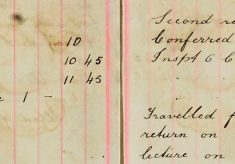 10
10 45
11 45
1 -
Second
Conferred
Inspt 6 6
Travelled f
return on
lecture on